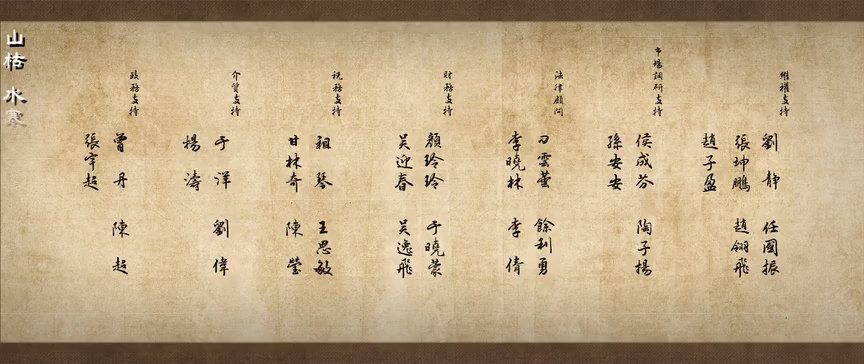 維權支持
劉靜 任國振
張坤鵬 趙翎飛
趙子盈
市場調研支持
侯成芬 陶子楊
孫安安
法律顧問
刁雲萤 餘利勇
李曉林 李倩
財務支持
顏玲玲 于曉蒙
吴迎春 吴逸飛
税務支持
祖琴 王思敏
甘林奇 陳瑩
介質支持
于洋 劉偉
楊濤
政務支持
曾丹 陳超
張宇超
山枯 水寒